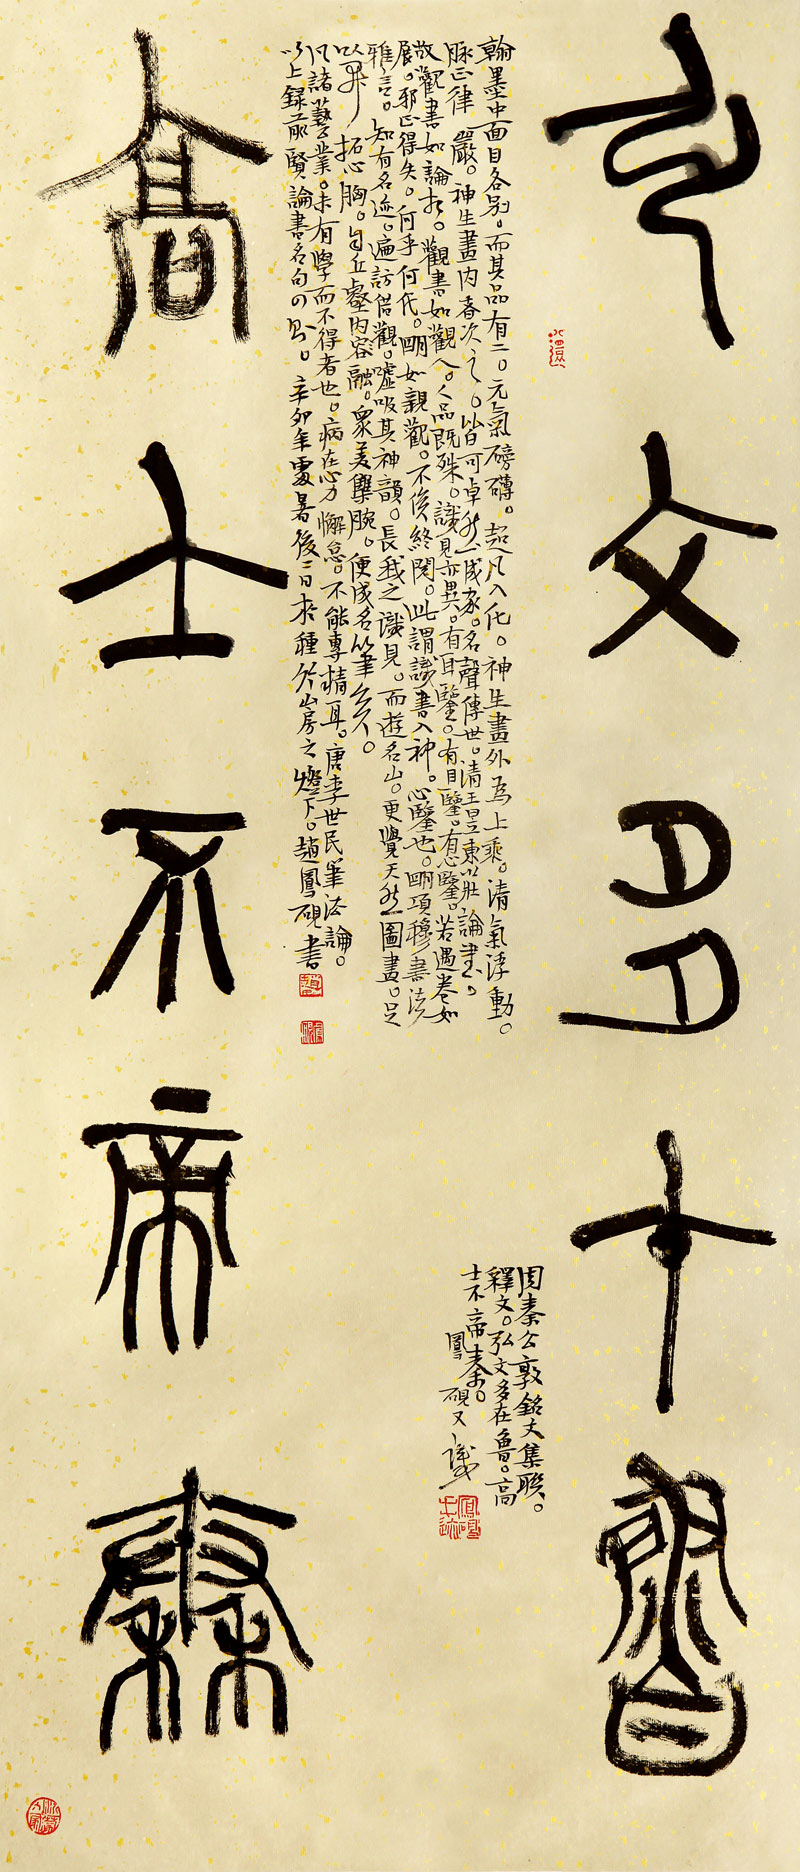 弘文多在魯
高士不帝秦
翰墨中面目各別。而其品有二。元氣磅礴。超凡入化。神生畫外為上乘。清氣浮動。
脉正律嚴。神生畫內者次之。皆可卓然成家。名聲傳世。清王昱東莊論畫。
故觀書如論相。觀書如觀人。人品既殊。識見亦異。有耳鑒。有目鑒。有心鑒。若遇卷如
展。邪正得失。何手何代。明如親觀。不俟終閱。此謂識書入神。心鑒也。明項穆書法
雅言。知有名迹。遍訪借觀。噓吸其神韻。長我之識見。而遊名山。更覺天然圖畫。足
以開拓心胸。自丘壑內容融。眾美集腕。便成名筆矣。
凡諸藝業。未有學而不得者也。病在心力懈怠。不能專精耳。唐李世民筆法論。
以上錄前賢論書名句四則。辛卯年處暑後二日於種竹山房之燈下。趙鳳硯書
周秦公敦銘文集聯。
釋文。弘文多在魯。高
士不帝秦。
鳳硯又識